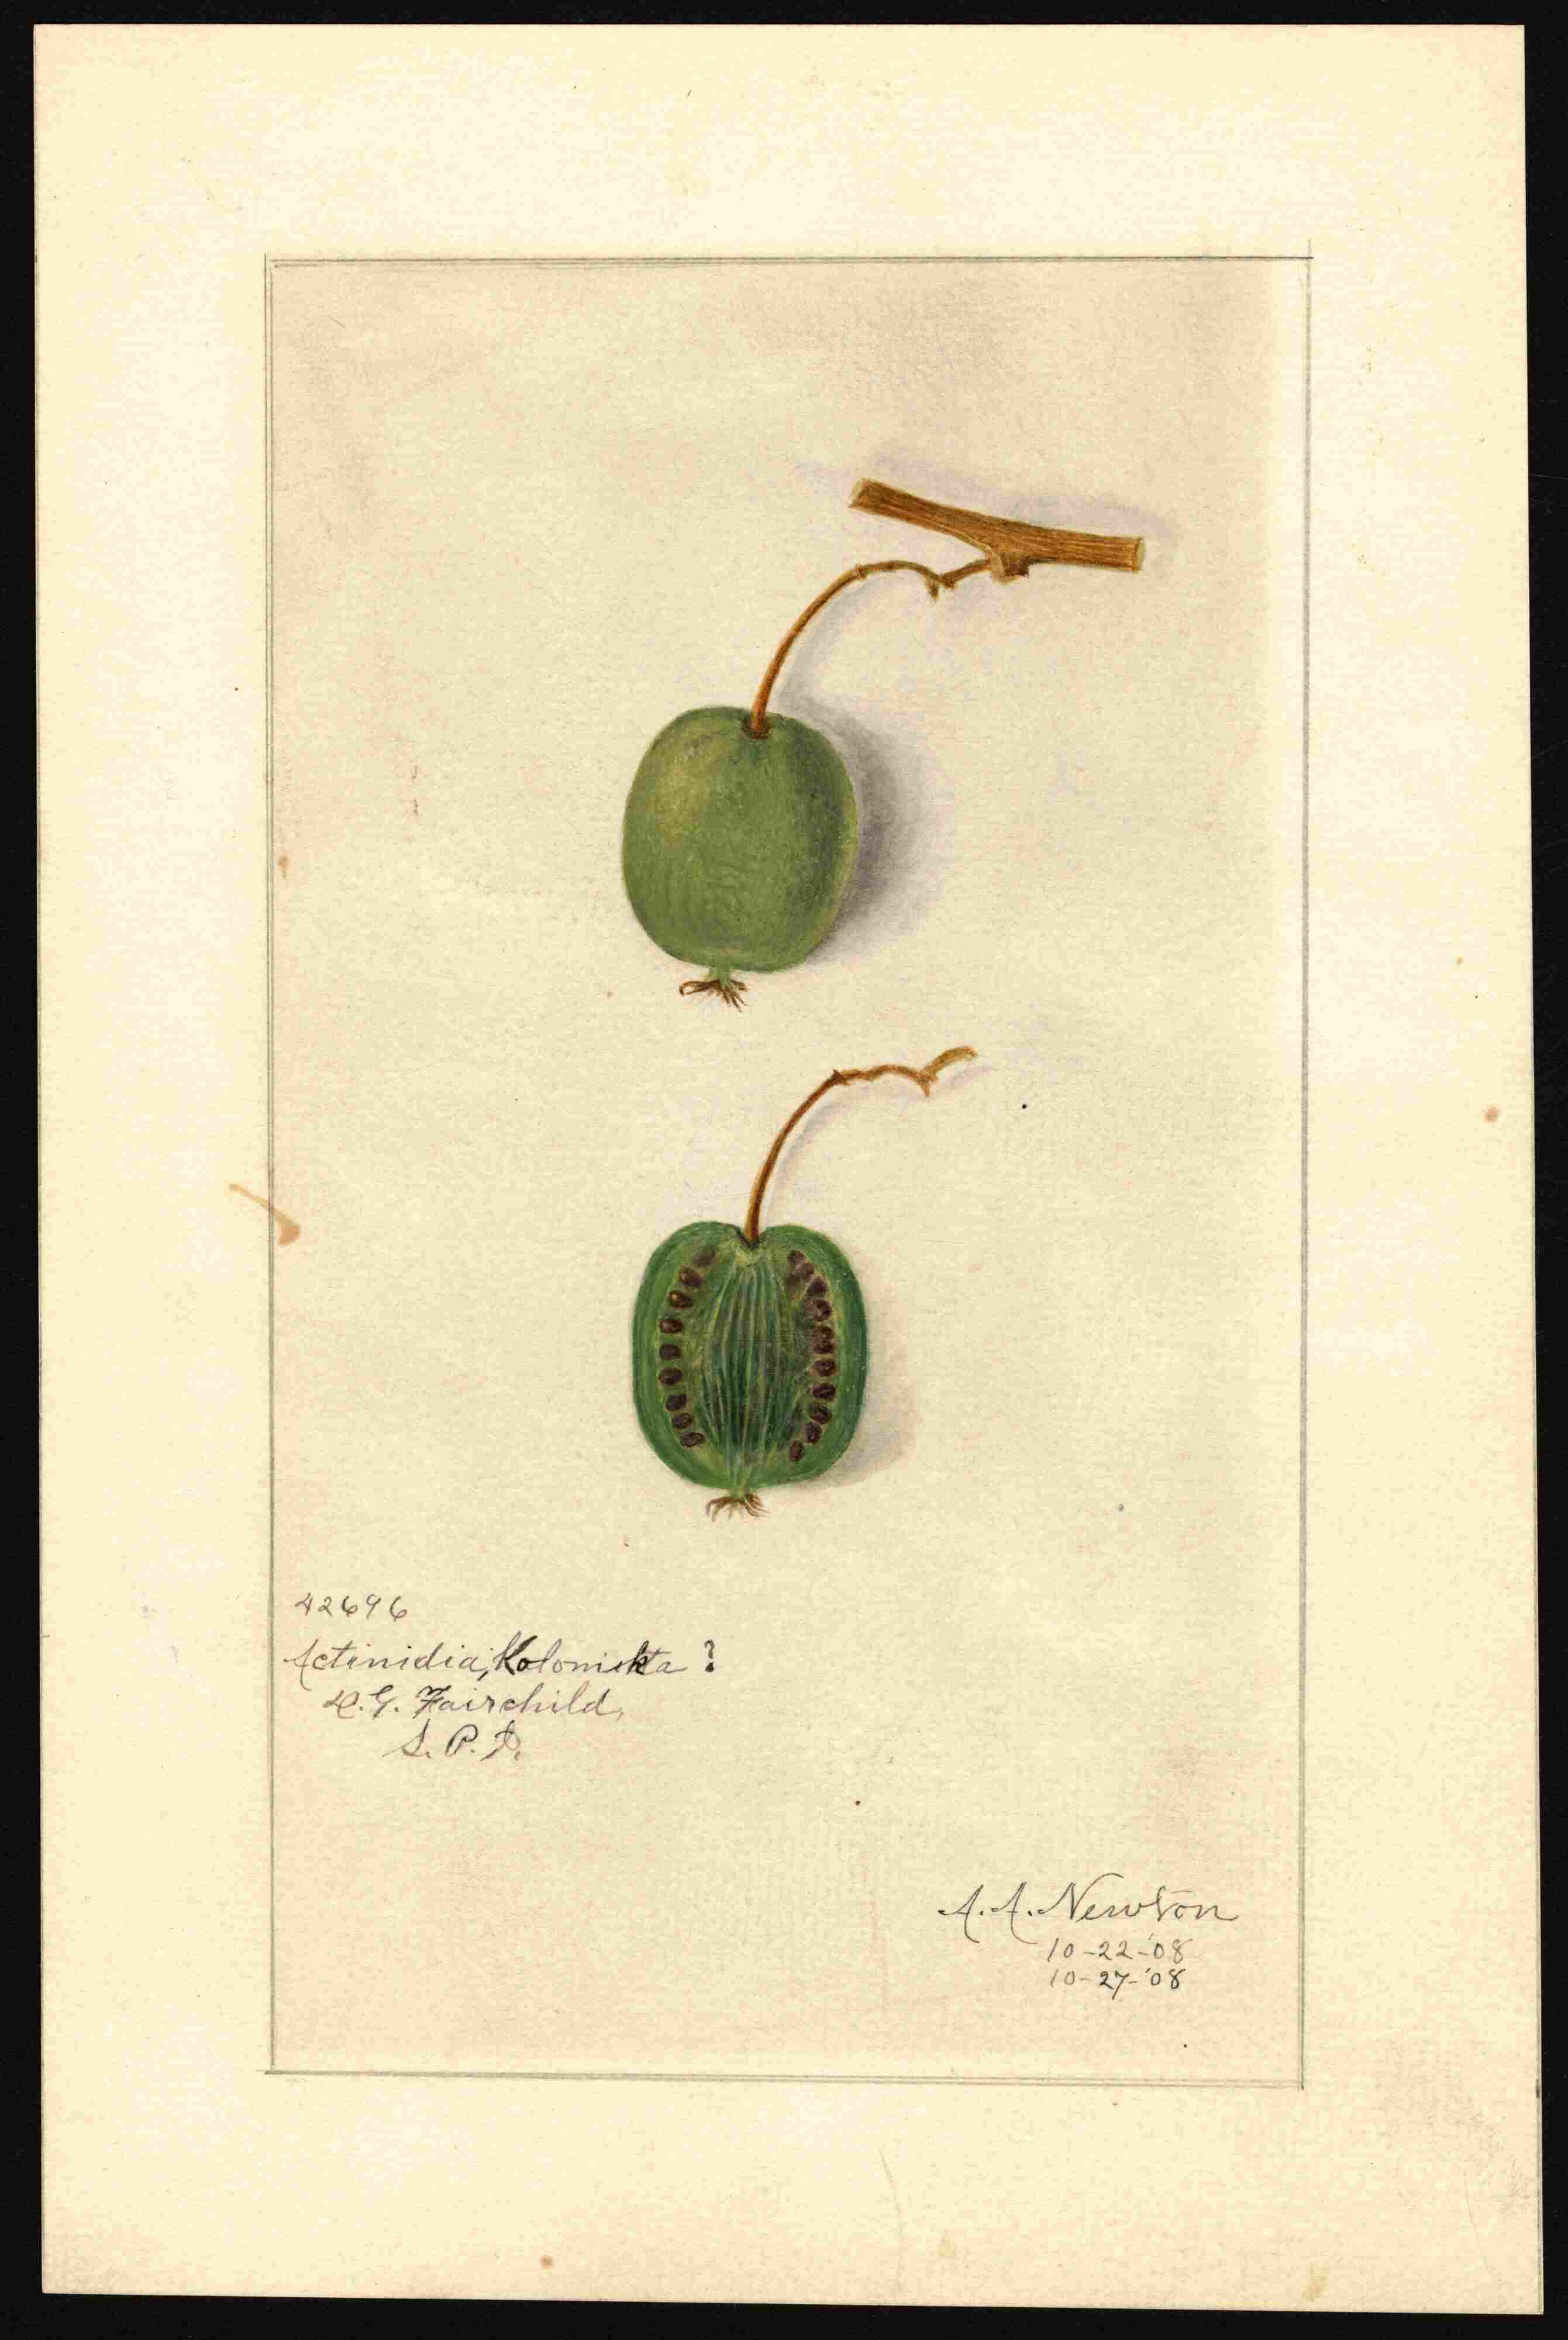 42696
Actinidia, Kolomikta ?
D. G. Fairchild,
S. P. I.
A. A. Newton
10-22-'08
10-27-'08